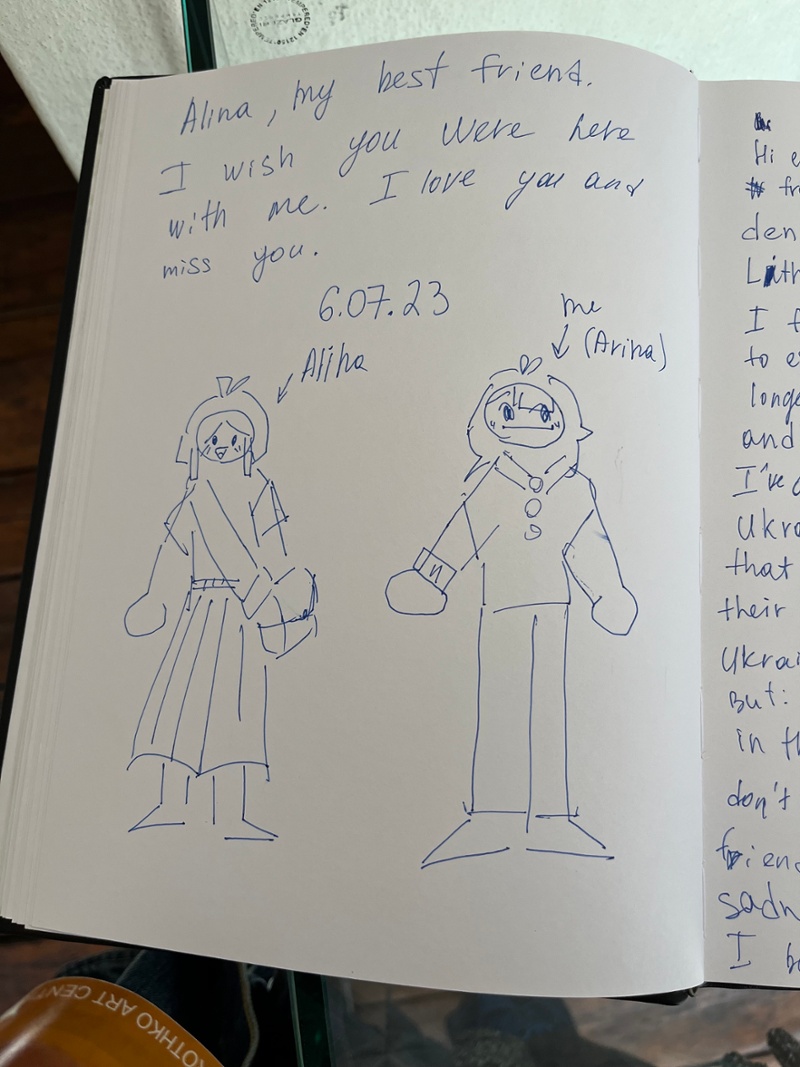 Alina, my best friend.
I wish you were here
with me. I love you and
miss you.
6.07.23
Alina
me
(Arina)
И
Hi
den
I
to
longe
and
I've
Ukra
that
their
Ukrai
But:
in th
don't
sadn
I
ROTHKO ART CENT